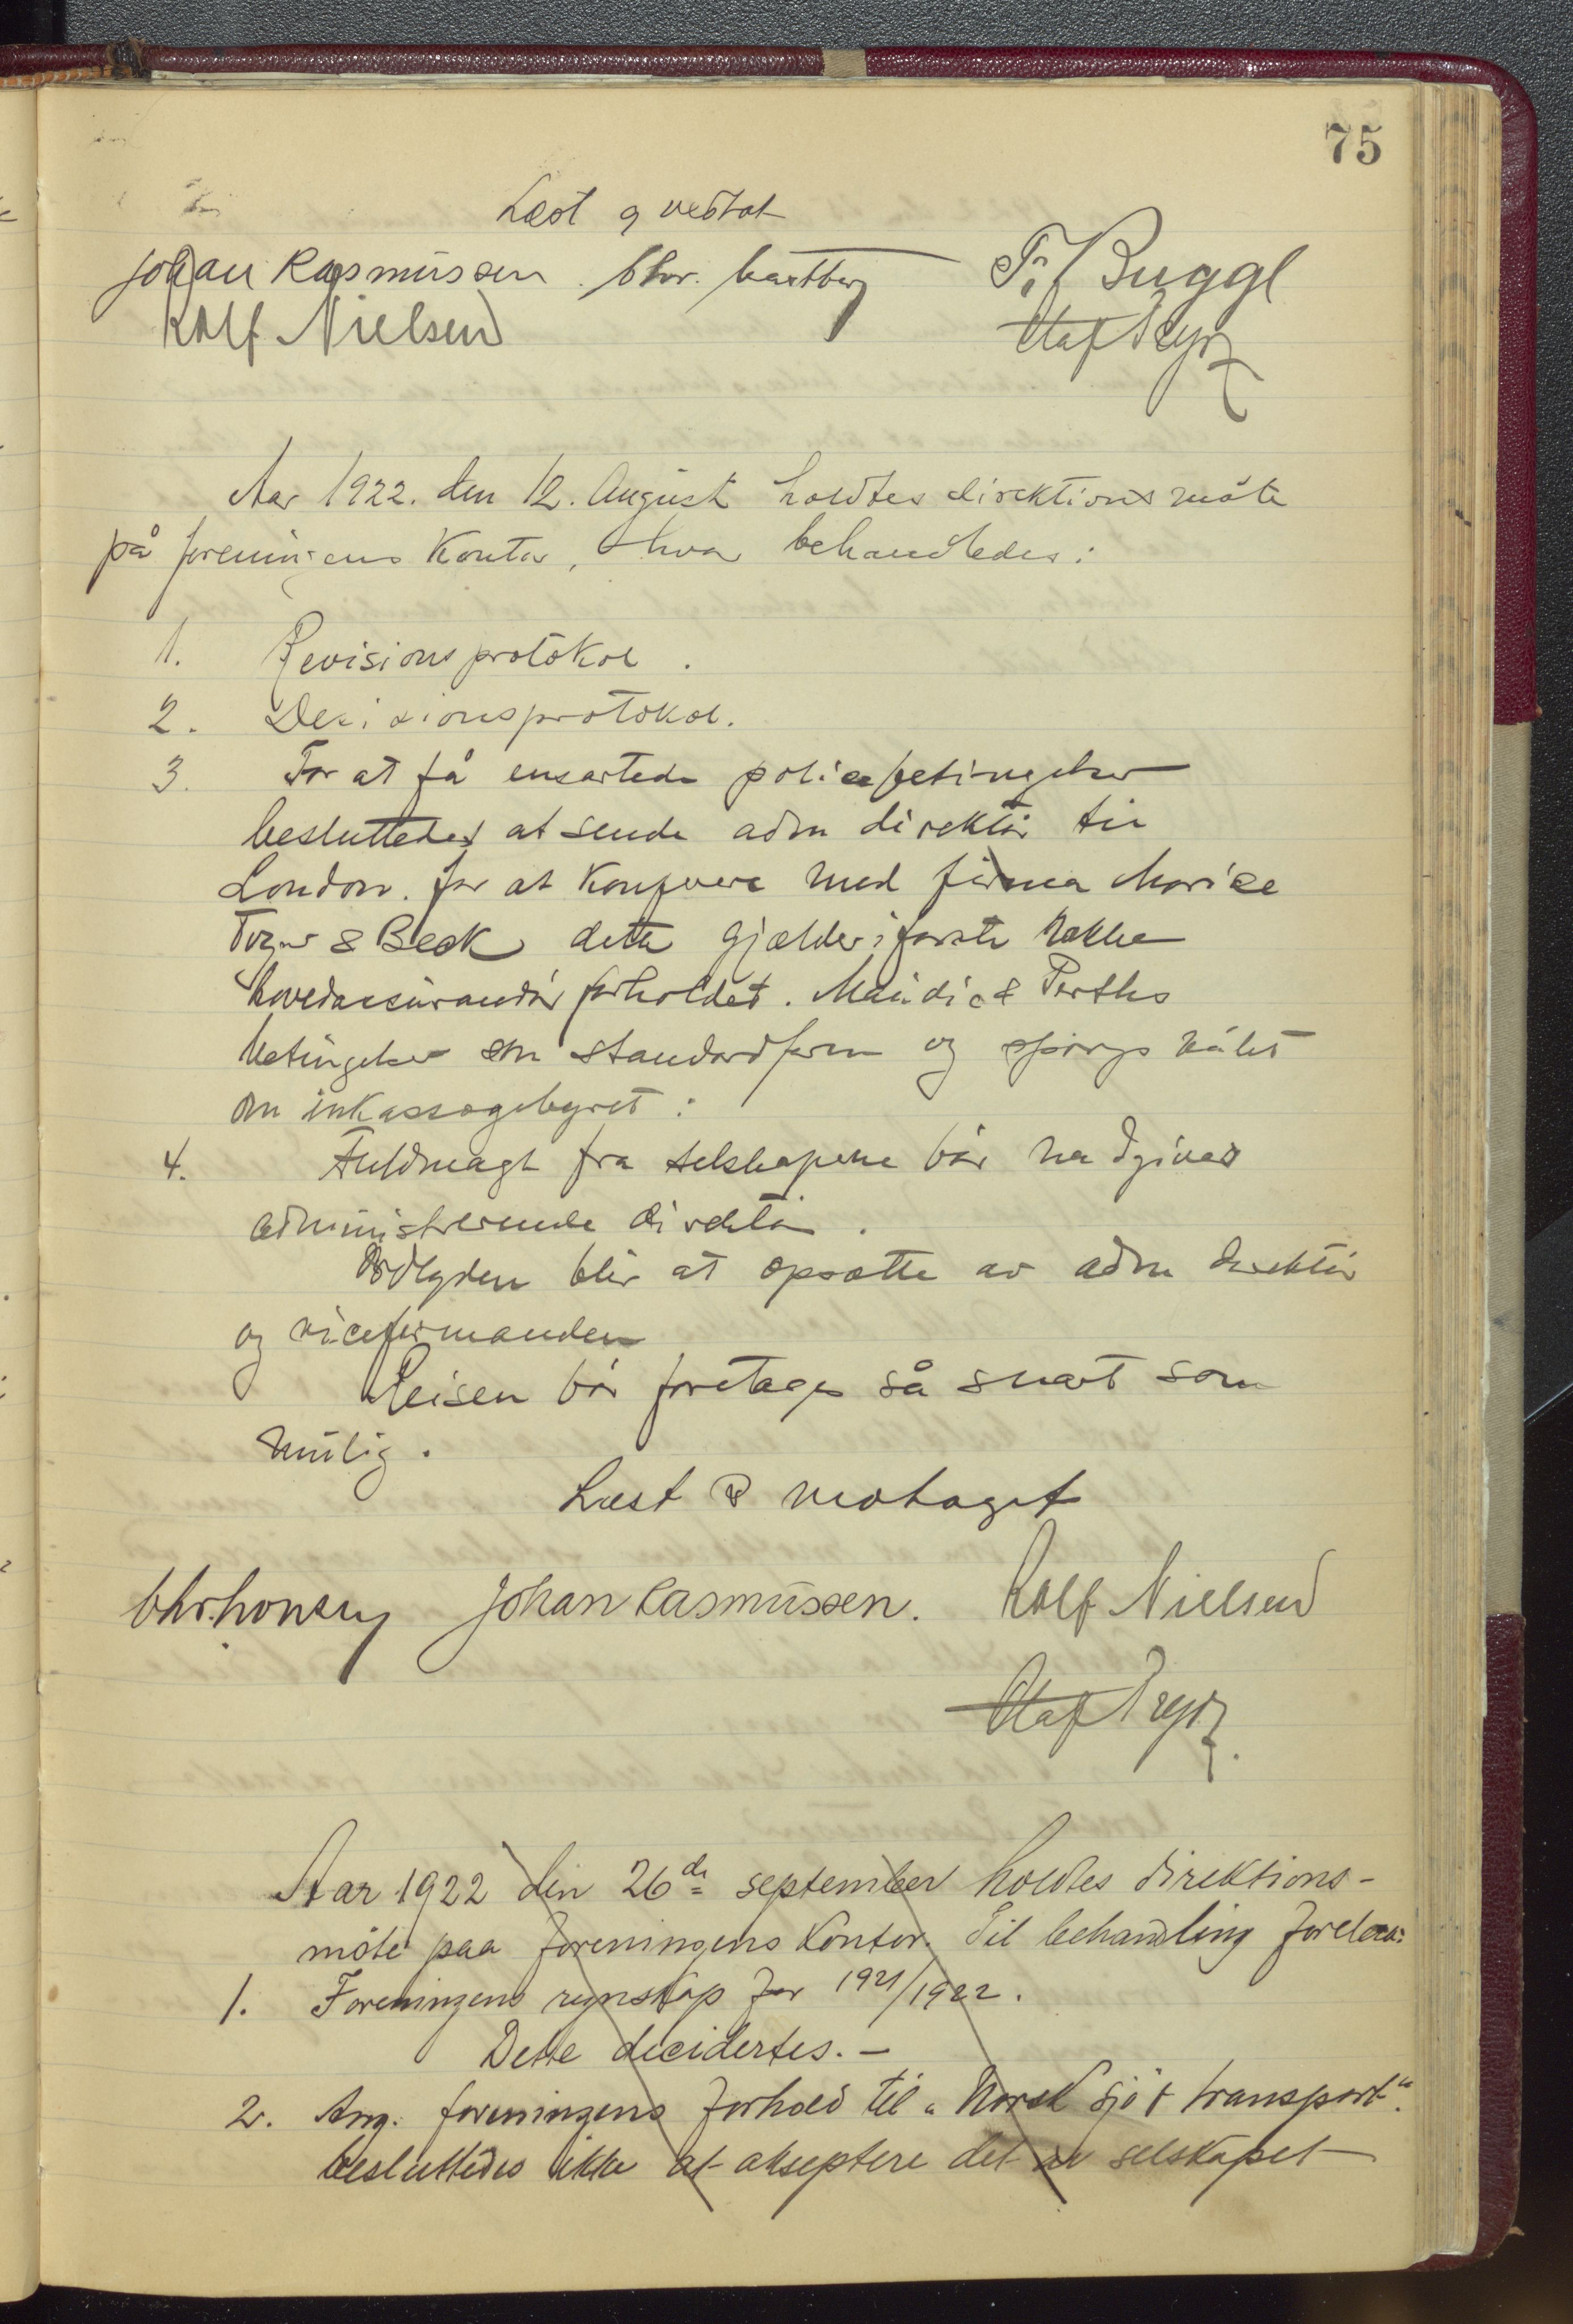 75
Læst og vedtat
Johan Rasmussen. Chr. F. Bugge
Rolf Nielsen Olaf
Aar 1922. den 12. August holdtes direktionsmöte
på foreningens Kontor, hvor behandledes:
1. Revisionsprotokol.
2. Decisionsprotokol.
3. For at få ensartede policebetingelser
besluttedes at sende adm direktör til
London. for at konferere med firma Morice
Tozer & Beck dette gjælder i förste række
hovedassurandör forholdet. &
betingelser som standardform og spörgsmålet
om inkassogebyret:
4. Fuldmagt fra selskapene bör medgives
administrerende direktör.
Ordlyden blir at opsætte av adm direktör
og viceformanden
Reisen bör foretages så snart som
mulig.
Læst & vedtaget
Chr. Johan Rasmussen. Rolf Nielsen
Olaf
Aar 1922 den 26de september holdtes direktions-
möte paa foreningens Kontor. Til behandling forelaa:
1. Foreningens regnskap for 1921/1922.
Dette decidertes. –
2. Ang. foreningens forhold til „Norsk Sjö & transport“.
besluttedes ikke at akseptere det av selskapet